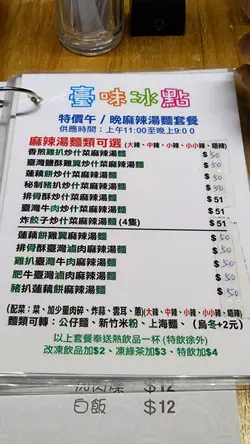 臺味冰點
特價午/晚麻辣湯麵套餐
供應時間：上午11:00至晚上9:00
麻辣湯麵類可選(大辣、中辣、小辣、小小辣、唔辣)
香煎雞扒炒什菜麻辣湯麵 $50
臺灣鹽酥雞翼炒什菜麻辣湯麵 $50
蓮藕餅炒什菜麻辣湯麵 $50
秘制豬扒炒什菜麻辣湯麵 $50
排骨酥炒什菜麻辣湯麵 $51
臺灣牛肉炒什菜麻辣湯麵 $51
炸餃子炒什菜麻辣湯麵(4隻) $51
蓮藕餅雞翼麻辣湯麵 $50
排骨酥臺灣鹵肉麻辣湯麵 $50
雞扒臺灣牛肉麻辣湯麵 $50
肥牛臺灣鹵肉麻辣湯麵 $50
豬扒蓮藕餅麻辣湯麵 $50
(配菜：菜、加少量肉碎、炸蒜、雲耳、蔥)(大辣、中辣、小辣、小小辣、唔辣)
麵類可轉：公仔麵、新竹米粉、上海麵、(烏冬+2元)
以上套餐奉送熱飲品一杯(特飲徐外)
改凍飲品加$2、凍綠茶加$3、特飲加$4
$12
白飯 $12